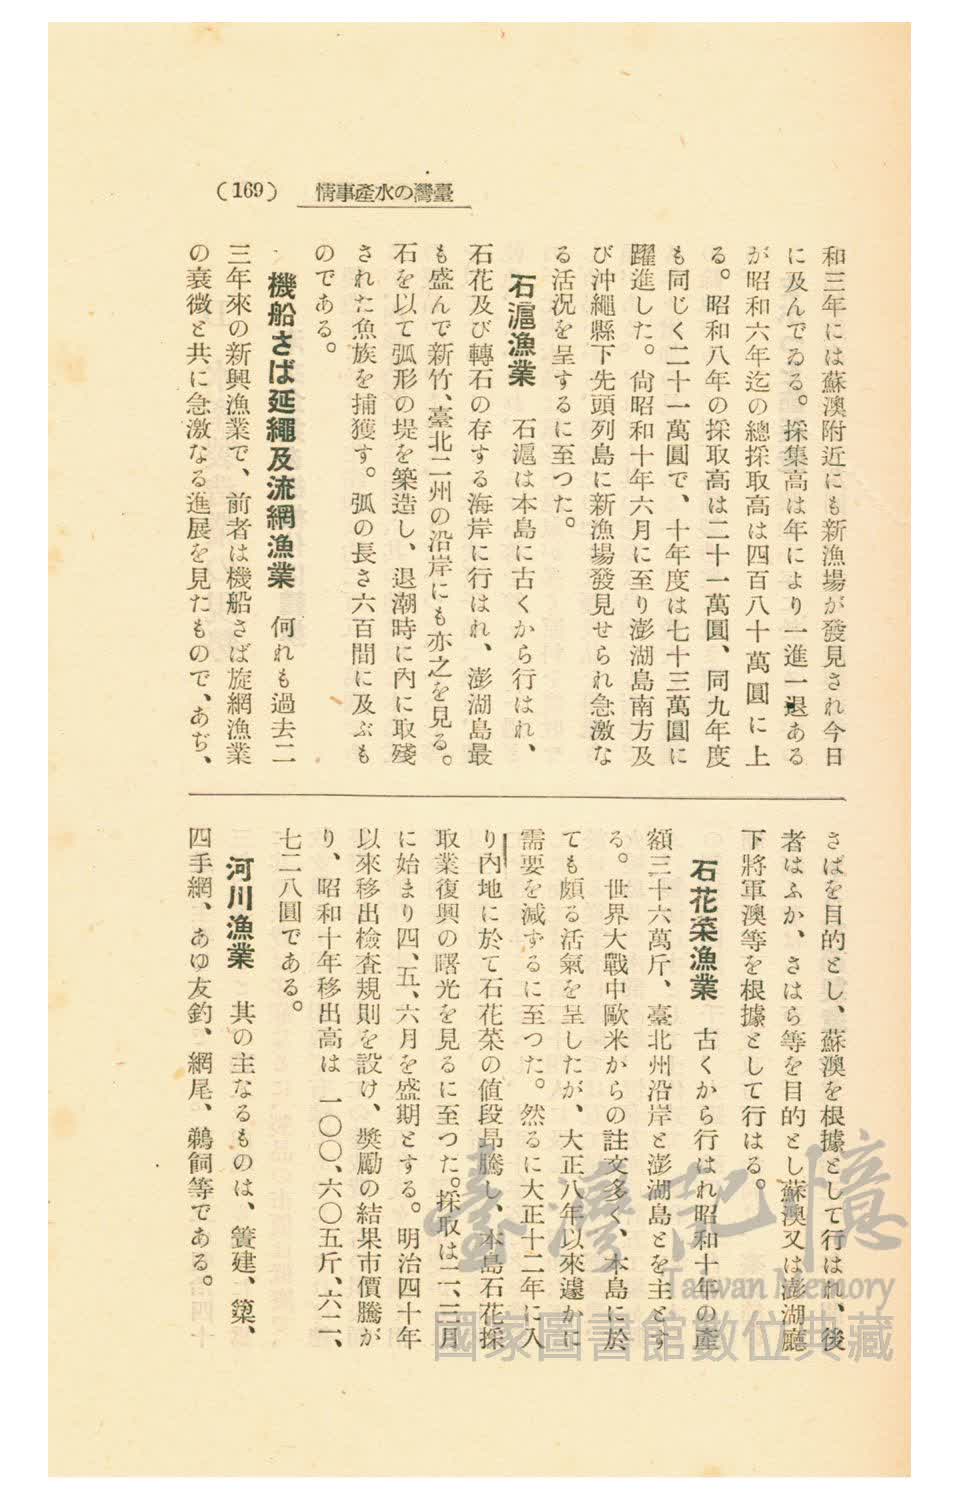 (169) 情事產水の灣臺
和三年には蘇澳附近にも新漁場が發見され今日
に及んでゐる。採集高は年により一進一退ある
が昭和六年迄の總採取高は四百八十萬圓に上
る。昭和八年の採取高は二十一萬圓、同九年度
も同じく二十一萬圓で、十年度は七十三萬圓に
躍進した。尙昭和十年六月に至り澎湖島南方及
び沖繩縣下先頭列島に新漁場發見せられ急激な
る活況を呈するに至つた。
石滬漁業 石滬は本島に古くから行はれ、
石花及び轉石の存する海岸に行はれ、澎湖島最
も盛んで新竹、臺北二州の沿岸にも亦之を見る。
石を以て弧形の堤を築造し、退潮時に內に取殘
された魚族を捕獲す。弧の長さ六百間に及ぶも
のである。
機船さば延繩及流網漁業 何れも過去二
三年來の新興漁業で、前者は機船さば旋網漁業
の衰微と共に急激なる進展を見たもので、あぢ、
さばを目的とし、蘇澳を根據として行はれ、後
者はふか、さはら等を目的とし蘇澳又は澎湖廳
下將軍澳等を根據として行はる。
石花菜漁業 古くから行はれ昭和十年の產
額三十六萬斤、臺北州沿岸と澎湖島とを主とす
る。世界大戰中歐米からの註文多く、本島に於
ても頗る活氣を呈したが、大正八年以來遽かに
需要を減ずるに至つた。然るに大正十二年に入
り內地に於て石花菜の値段昂騰し、本島石花採
取業復興の曙光を見るに至つた。採取は二、三月
に始まり四、五、六月を盛期とする。明治四十年
以來移出檢査規則を設け、獎勵の結果市價騰が
り、昭和十年移出高は一〇〇、六〇五斤、六二、
七二八圓である。
河川漁業 其の主なるものは、簀建、簗、
四手網、あゆ友釣、網尾、鵜飼等である。
臺灣記憶
Taiwan Memory
國家圖書館數位典藏